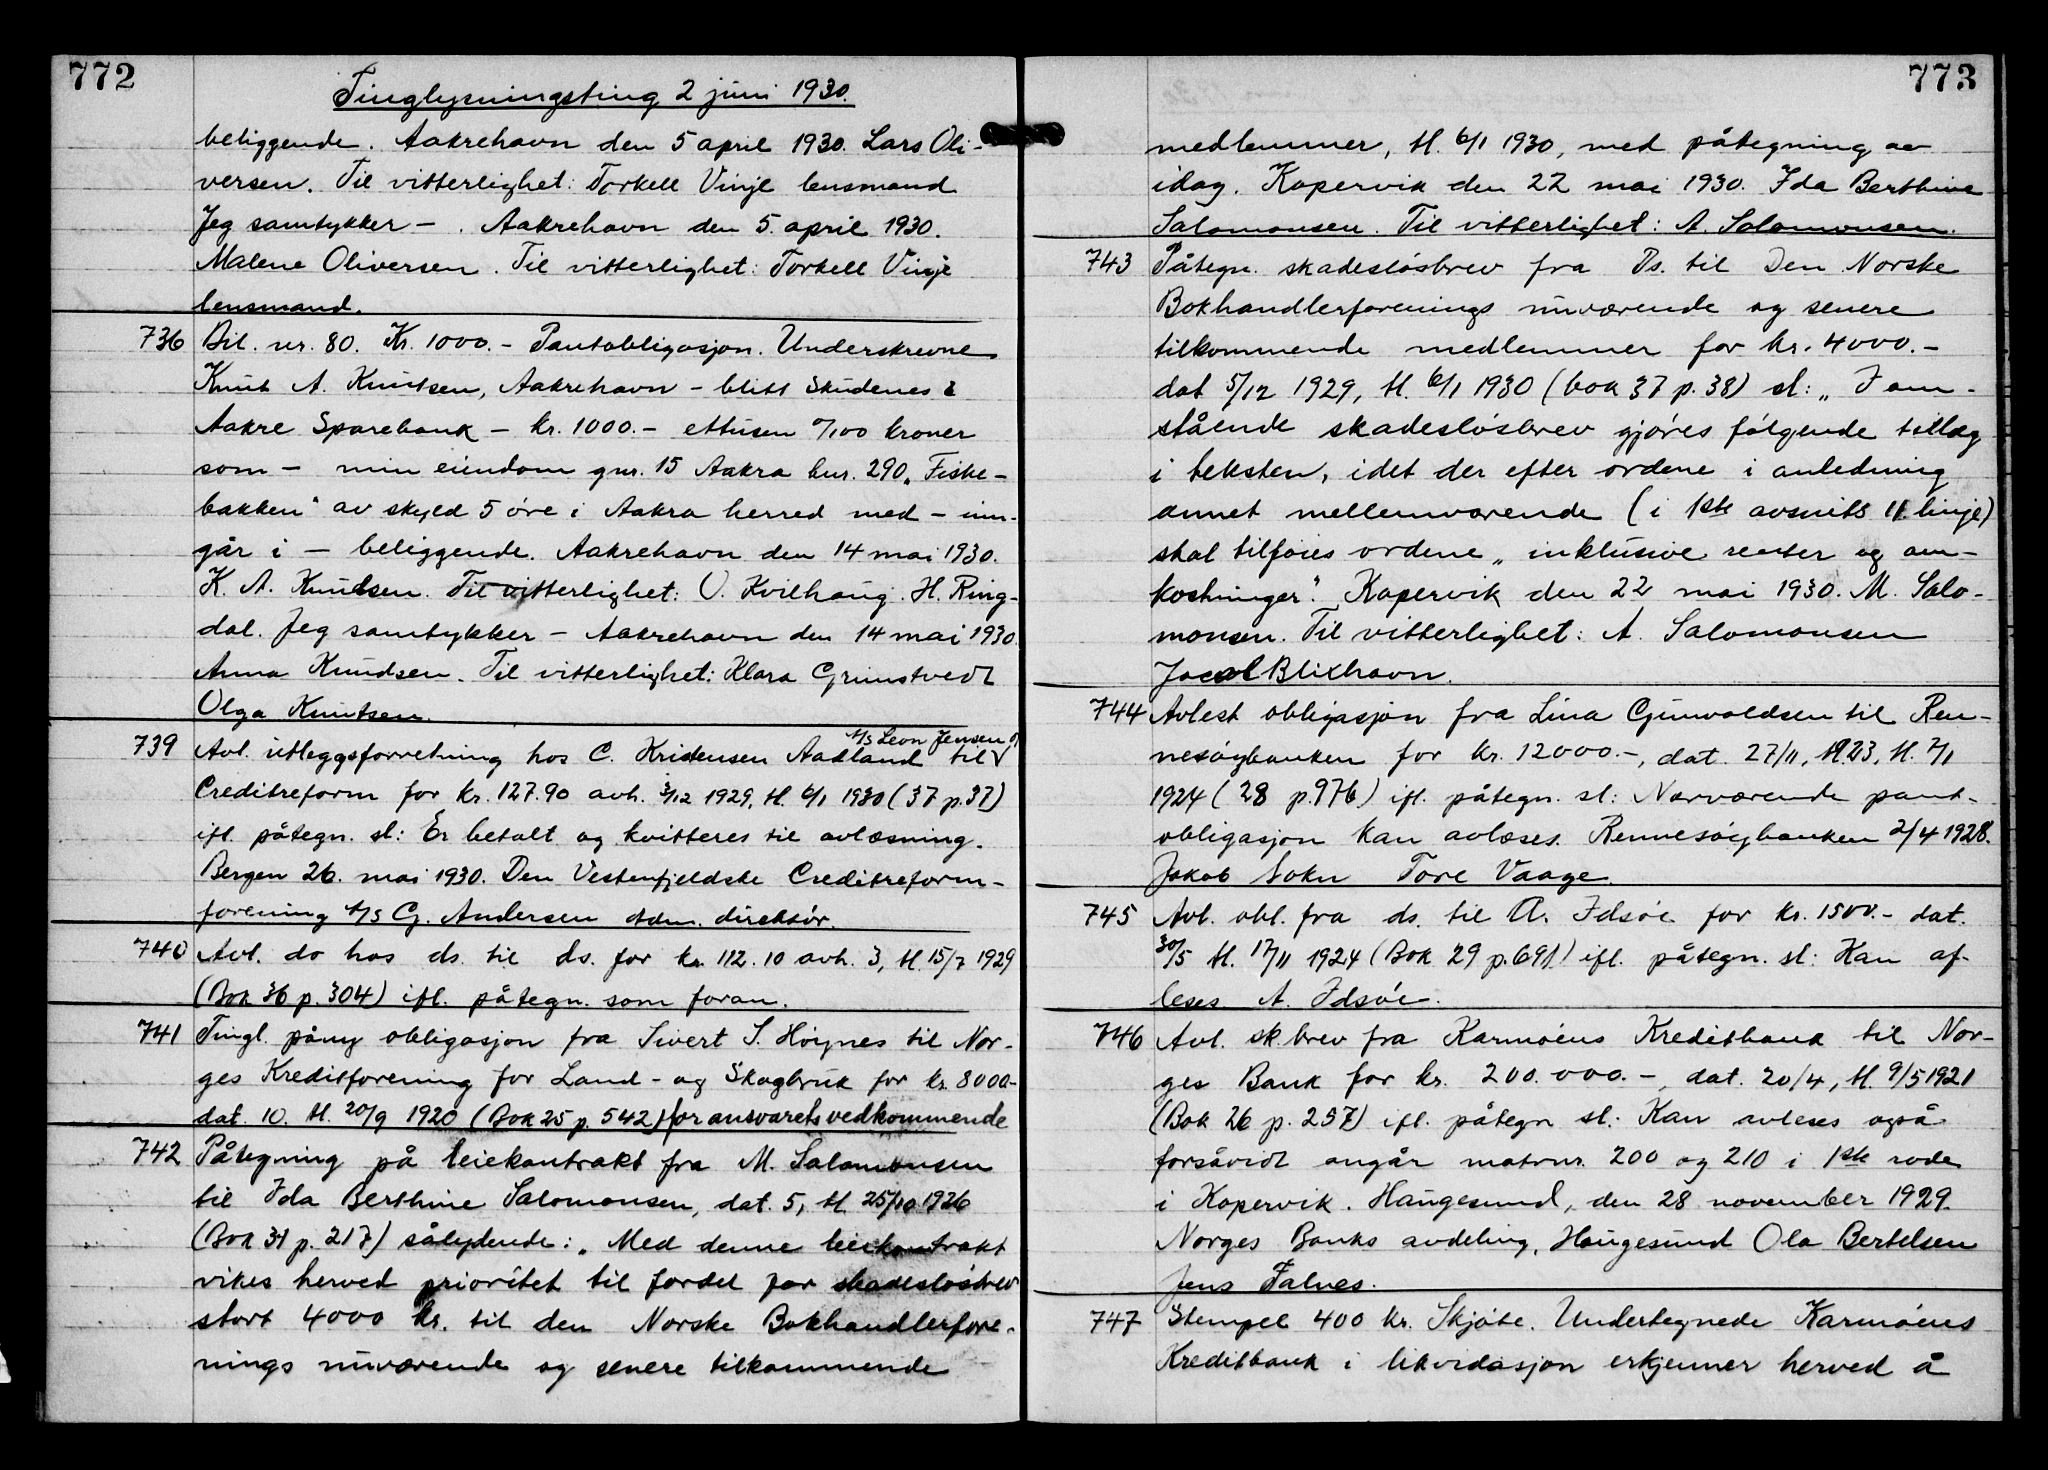 772
Tinglysningsting 2 juni 1930.
beliggende. Aakrehavn den 5 april 1930. Lars Oli-
versen. Til vitterlighet: Torkell Vinje lensmand
Jeg samtykker – . Aakrehavn den 5. april 1930.
Malene Oliversen. Til vitterlighet: Torkell Vinje
lensmand.
736 Dil. nr. 80. Kr. 1000.- Pantobligasjon. Underskrevne
Knut A. Knutsen, Aakrehavn – blitt Skudenes &
Aakre Sparebank – kr. 1000.- ettusen 0/100 kroner
som – min eiendom gnr. 15 Aakra bnr. 290 „Fiske-
bakken" av skyld 5 øre i Aakra herred med – inn-
går i – beliggende. Aakrehavn den 14 mai 1930.
K. A. Knudsen. Til vitterlighet: O. Kvilhaug. H. Ring-
dal. Jeg samtykker – Aakrehavn den 14 mai 1930.
Anna Knudsen. Til vitterlighet: Klara Grimstvedt
Olga Knutsen.
A/S Leon Jensen o/
739 Avl. utleggsforretning hos C. Kristensen Aadland til V
Creditreform for kr. 127.90 avh. 3/12 1929, tl. 6/1 1930 (37 p. 37)
ifl. påtegn. sl: Er betalt og kvitteres til avlæsning.
Bergen 26. mai 1930. Den Vestenfjeldske Creditreform-
forening A/S G. Andersen adm. direktör.
740 Avl. do hos ds. til ds. for kr. 112.10 avh. 3, tl. 15/7 1929
(Bok 36 p. 304) ifl. påtegn. som foran.
741 Tingl. påny obligasjon fra Sivert S. Höynes til Nor-
ges Kreditforening for Land- og Skogbruk for kr. 8000.-
dat. 10. tl. 20/9 1920 (Bok 25 p. 542) for ansvarets vedkommende
742 Påtegning på leiekontrakt fra M. Salomonsen
til Ida Berthine Salomonsen, dat. 5, tl. 25/10 1926
(Bok 31 p. 217) sålydende: „Med denne leiekontrakt
vikes herved prioritet til fordel for skadeslösbrev
stort 4000 kr. til den Norske Bokhandlerfore-
nings nuværende og senere tilkommende
773
medlemmer, tl. 6/1 1930, med påtegning av
idag. Kopervik den 22 mai 1930. Ida Berthine
Salomonsen. Til vitterlighet: A. Salomonsen.
743 Påtegn. skadeslösbrev fra Ds. til Den Norske
Bokhandlerforenings nuværende og senere
tilkommende medlemmer for kr. 4000.-
dat 5/12 1929, tl. 6/1 1930 (bok 37 p. 38) sl: „I om-
stående skadeslösbrev gjöres fölgende tillæg
i teksten, idet der efter ordene i anledning
annet mellemværende (i 1ste avsnits 11. linje)
skal tilföies ordene „inklusive renter og om-
kostninger". Kopervik den 22 mai 1930. M. Salo-
monsen. Til vitterlighet: A. Salomonsen
Jacob Blikhavn.
744 Avlest obligasjon fra Lina Gunvaldsen til Ren-
nesöybanken for kr. 12000.-, dat. 27/11, 1923, tl. 7/1
1924 (28 p. 976) ifl. påtegn. sl: Nærværende pant-
obligasjon kan avlæses. Rennesöybanken 2/4 1928.
Jakob Sokn Tore Vaage.
745 Avl. obl. fra ds. til A. Idsöe for kr. 1500.- dat.
30/5 tl. 17/11 1924 (Bok 29 p. 691) ifl. påtegn. sl: Kan af-
leses A. Idsöe.
746 Avl. sk.brev fra Karmöens Kreditbank til Nor-
ges Bank for kr. 200.000.-, dat. 20/4, tl. 9/5 1921
(Bok 26 p. 257) ifl. påtegn sl: Kan avleses også
forsåvidt angår matrnr. 200 og 210 i 1ste rode
i Kopervik. Haugesund, den 28 november 1929.
Norges Banks avdeling, Haugesund Ola Bertelsen
Jens Falnes.
747 Stempel 400 kr. Skjöte. Undertegnede Karmöens
Kreditbank i likvidasjon erkjenner herved å